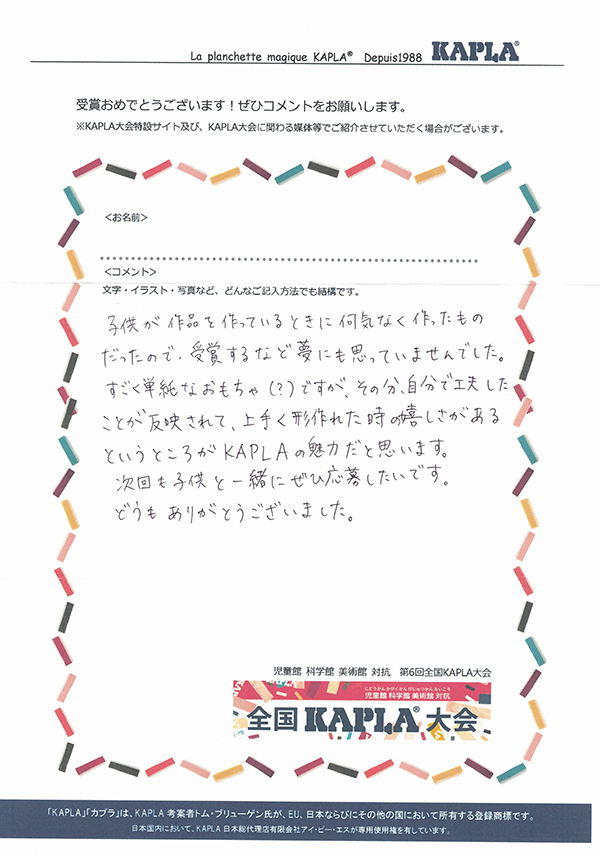 La planchette magique KAPLA® Depuis1988 KAPLA®
受賞おめでとうございます！ぜひコメントをお願いします。
※KAPLA大会特設サイト及び、KAPLA大会に関わる媒体等でご紹介させていただく場合がございます。
＜お名前＞
＜コメント＞
文字・イラスト・写真など、どんなご記入方法でも結構です。
子供が作品を作っているときに何気なく作ったもの
だったので、受賞するなど夢にも思っていませんでした。
すごく単純なおもちゃ(?)ですが、その分、自分で工夫した
ことが反映されて、上手く形作れた時の嬉しさがある
というところがKAPLAの魅力だと思います。
次回も子供と一緒にぜひ応募したいです。
どうもありがとうございました。
児童館 科学館 美術館 対抗 第6回全国KAPLA大会
じどうかん かがくかん びじゅつかん たいこう
児童館 科学館 美術館 対抗
全国KAPLA®大会
「KAPLA」「カプラ」は、KAPLA 考案者トム・ブリューゲン氏が、EU、日本ならびにその他の国において所有する登録商標です。
日本国内において、KAPLA 日本総代理店有限会社アイ・ピー・エスが専用使用権を有しています。